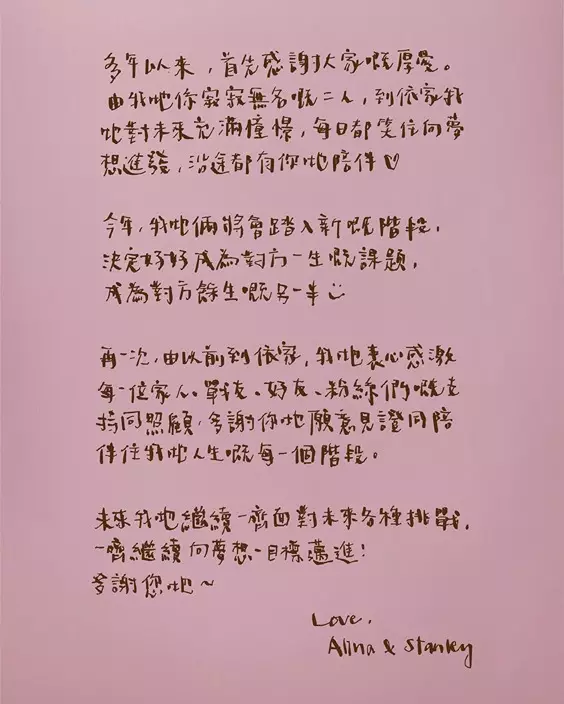 多年以來，首先感謝大家嘅厚愛。
由我哋係寂寂無名嘅二人，到依家我
哋對未來充滿憧憬，每日都笑住向夢
想進發，沿途都有你哋陪伴♡
今年，我哋倆將會踏入新嘅階段，
決定好好成為對方一生嘅課題，
成為對方餘生嘅另一半
再一次，由以前到依家，我哋衷心感激
每一位家人、戰友、好友、粉絲們嘅支
持同照顧，多謝你哋願意見證同陪
伴住我哋人生嘅每一個階段。
未來我哋繼續一齊面對未來各種挑戰，
一齊繼續向夢想、目標邁進！
多謝您哋～
Love,
Alina & Stanley